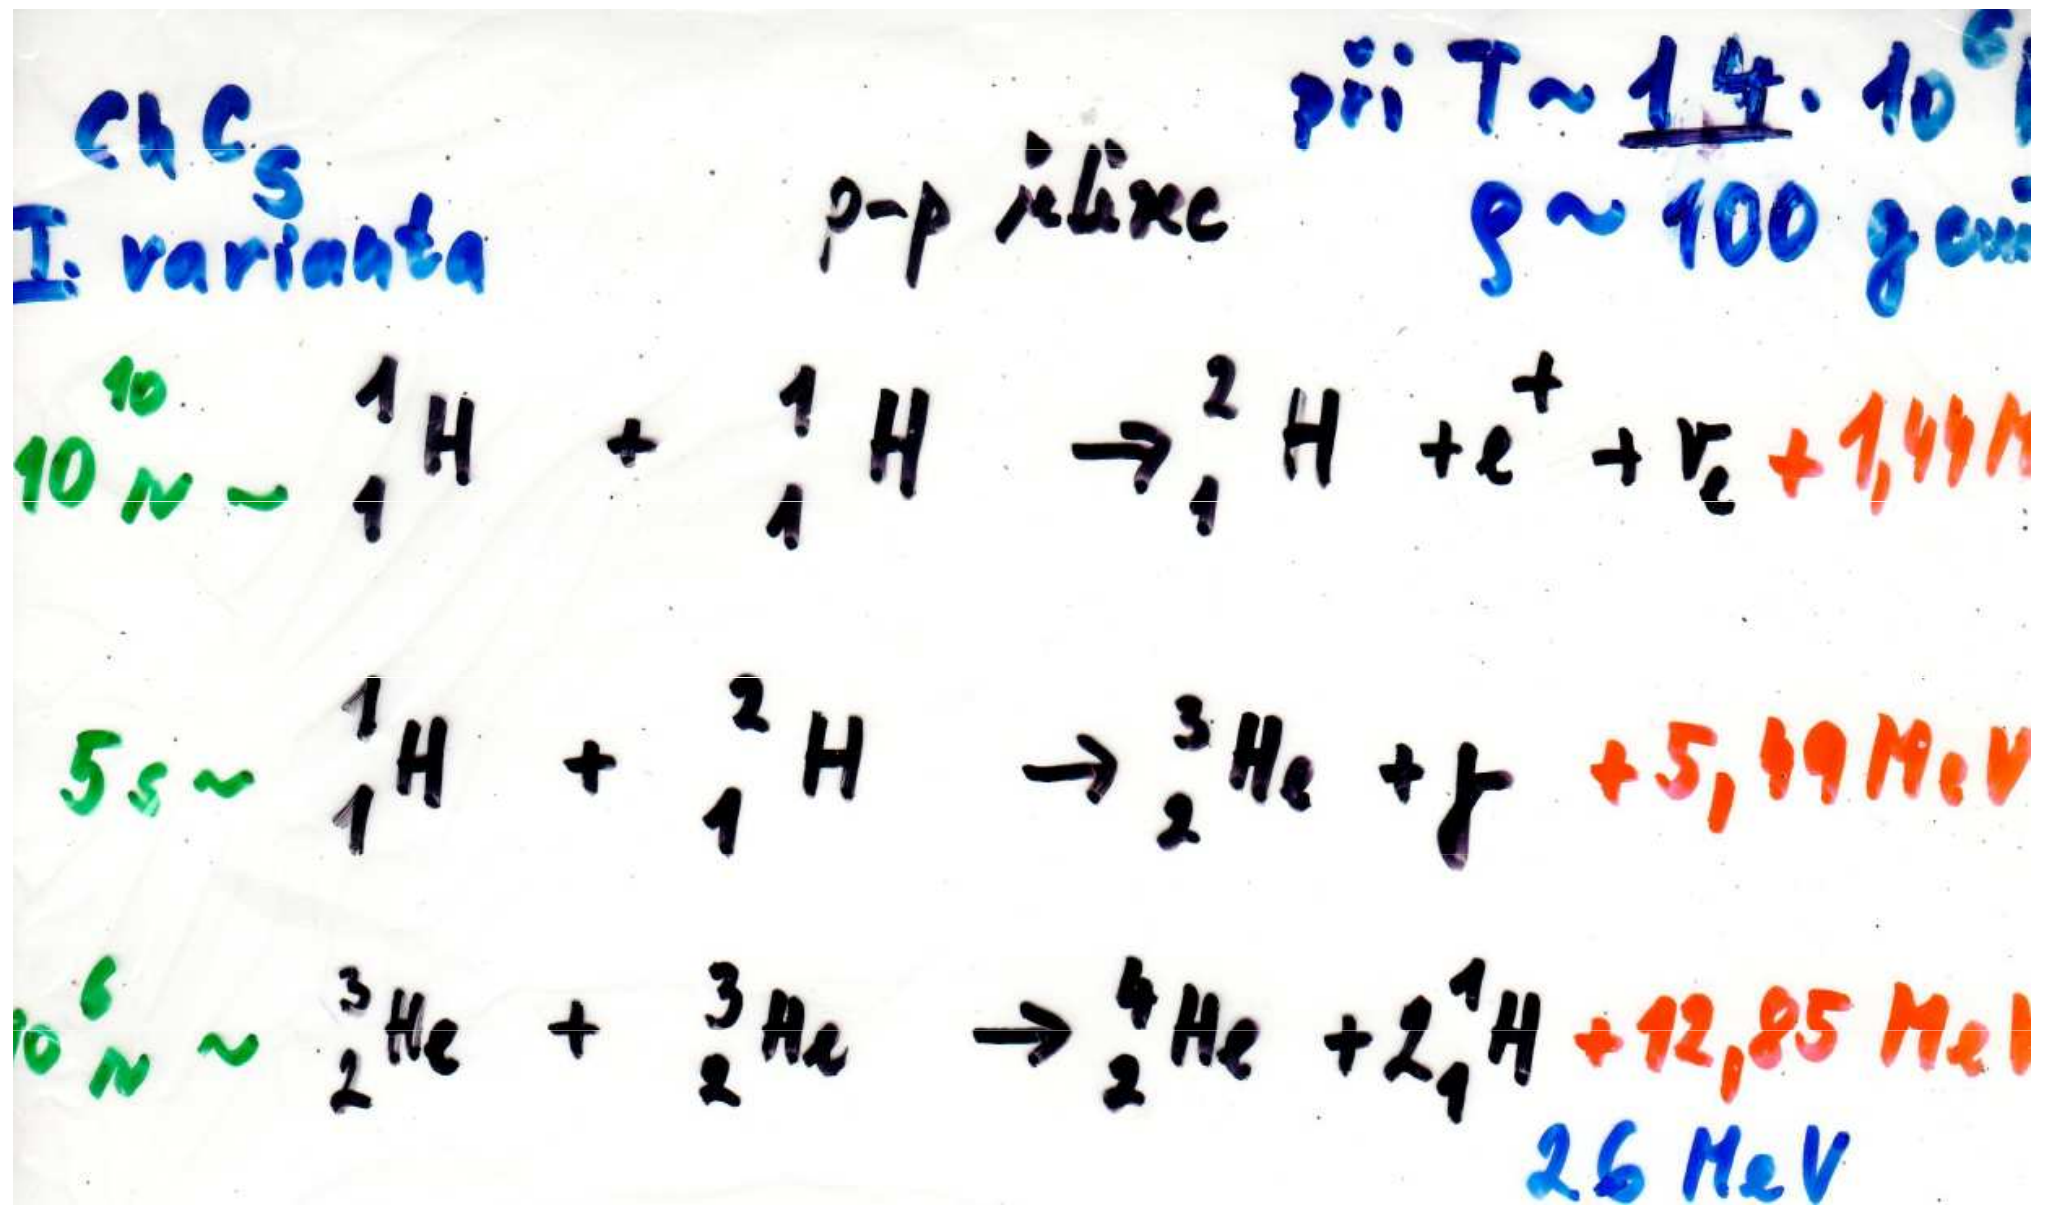 ChC_S při T ~ 14 · 10^6
I. varianta p-p ρ ~ 100 g cm
10^10 N ~ ^1_1H + ^1_1H → ^2_1H + e^+ + ν_e + 1,44 M
5 s ~ ^1_1H + ^2_1H → ^3_2He + γ + 5,49 MeV
10^6 N ~ ^3_2He + ^3_2He → ^4_2He + 2 ^1_1H + 12,85 MeV
26 MeV